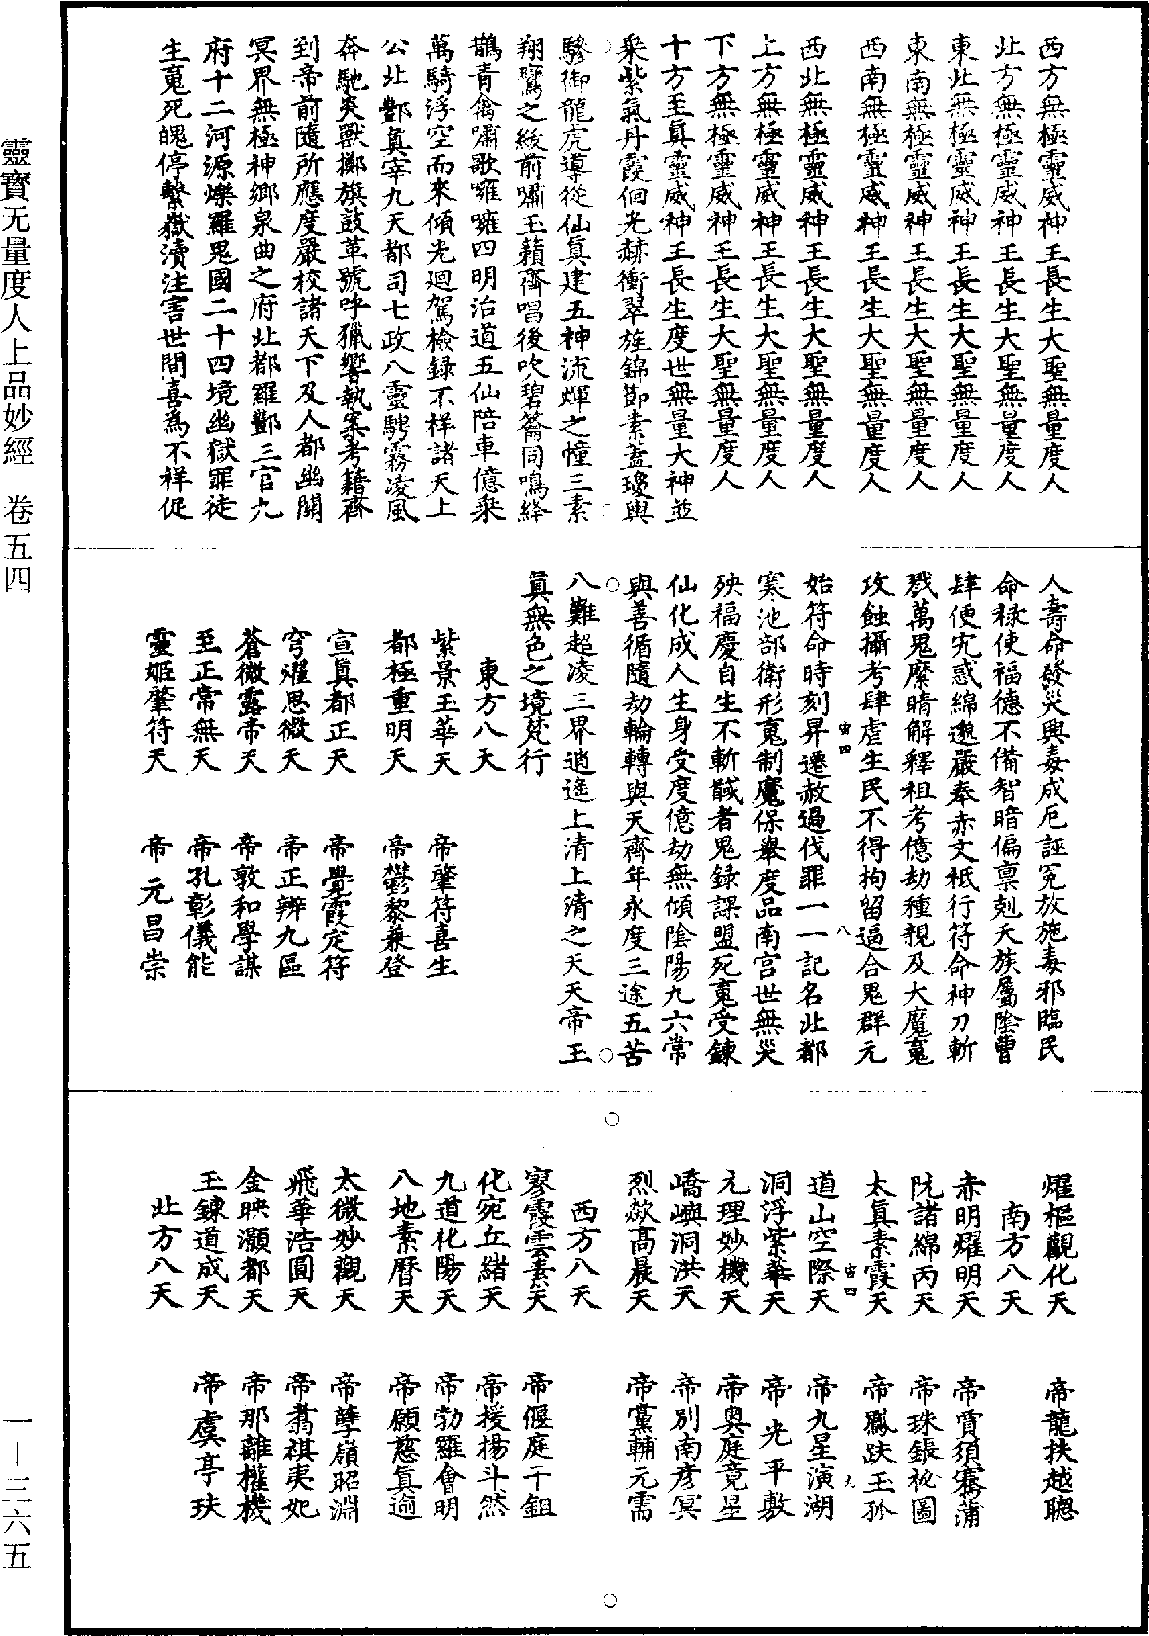 西方無極靈威神王長生大聖無量度人
北方無極靈威神王長生大聖無量度人
東北無極靈威神王長生大聖無量度人
東南無極靈威神王長生大聖無量度人
西南無極靈威神王長生大聖無量度人
西北無極靈威神王長生大聖無量度人
上方無極靈威神王長生大聖無量度人
下方無極靈威神王長生大聖無量度人
十方至真靈威神王長生度世無量大神並
乘紫氣丹霞佪光赫衝翠旌錦節素蓋瓊輿
驂御龍虎導從仙真建五神流輝之幢三素
翔鸞之綾前嘯玉籟齊唱後吹碧籥同鳴絳
鵲青禽嘯歌嗺嗺四明治道五仙陪車億乘
萬騎浮空而來傾光迴駕檢錄不祥諸天上
公北酆真宰九天都司七政八靈騁霧凌風
奔馳炎獸擲旗鼓革號呼獵響執案考籍齊
到帝前隨所應度嚴校諸天下及人都幽關
冥界無極神鄉泉曲之府北都羅酆三官九
府十二河源爍羅鬼國二十四境幽獄罪徒
生䰟死魄停繫嶽瀆注害世間喜為不祥促
人壽命發災興毒成厄誣冤放施毒邪臨民
命祿使福德不備智暗偏稟剋夭族屬陰曹
肆便宄惑綿邈嚴奉赤文秪行符命神刀斬
戮萬鬼縻睛解釋祖考億劫種親及大魔䰟
攻蝕攝考肆虐生民不得拘留逼合鬼群元
始符命時刻昇遷赦過伐罪一一記名北都
寒池部衛形䰟制魔保舉度品南宮世無災
殃福慶自生不斬馘者鬼錄課盟死䰟受鍊
仙化成人生身受度億劫無傾陰陽九六常
與善循隨劫輪轉與天齊年永度三途五苦
八難超凌三界逍遙上清上清之天天帝玉
真無色之境梵行
東方八天
紫景玉華天 帝肇符喜生
都極重明天 帝鬱黎兼登
宣真都正天 帝覺霞定符
穹濯思微天 帝正辨九區
蒼微露帝天 帝敦和學謀
至正常無天 帝孔彰儀能
靈姬肇符天 帝元昌崇
燿樞觀化天 帝龍扶越聰
南方八天
赤明燿明天 帝賣須騫蒲
阮諸綿丙天 帝珠鋹祕圖
太真素霞天 帝鳳趺玉孙
道山空際天 帝九星演湖
洞浮紫華天 帝光平敷
元理妙機天 帝奧庭竟星
嶠嶼洞洪天 帝別南彥冥
烈歊高晨天 帝黨輔元需
西方八天
寥霞雲素天 帝偃庭千鉏
化宛丘緒天 帝援揚斗然
九道化陽天 帝勃羅會明
八地素曆天 帝願慈真逾
太微妙觀天 帝孽嶺昭淵
飛華浩圓天 帝翥祺夷妃
金映灝都天 帝那離權機
玉鍊道成天 帝虞亭玞
北方八天
宙四
八
宙四
九
靈寶无量度人上品妙經 卷五四
一—三六五